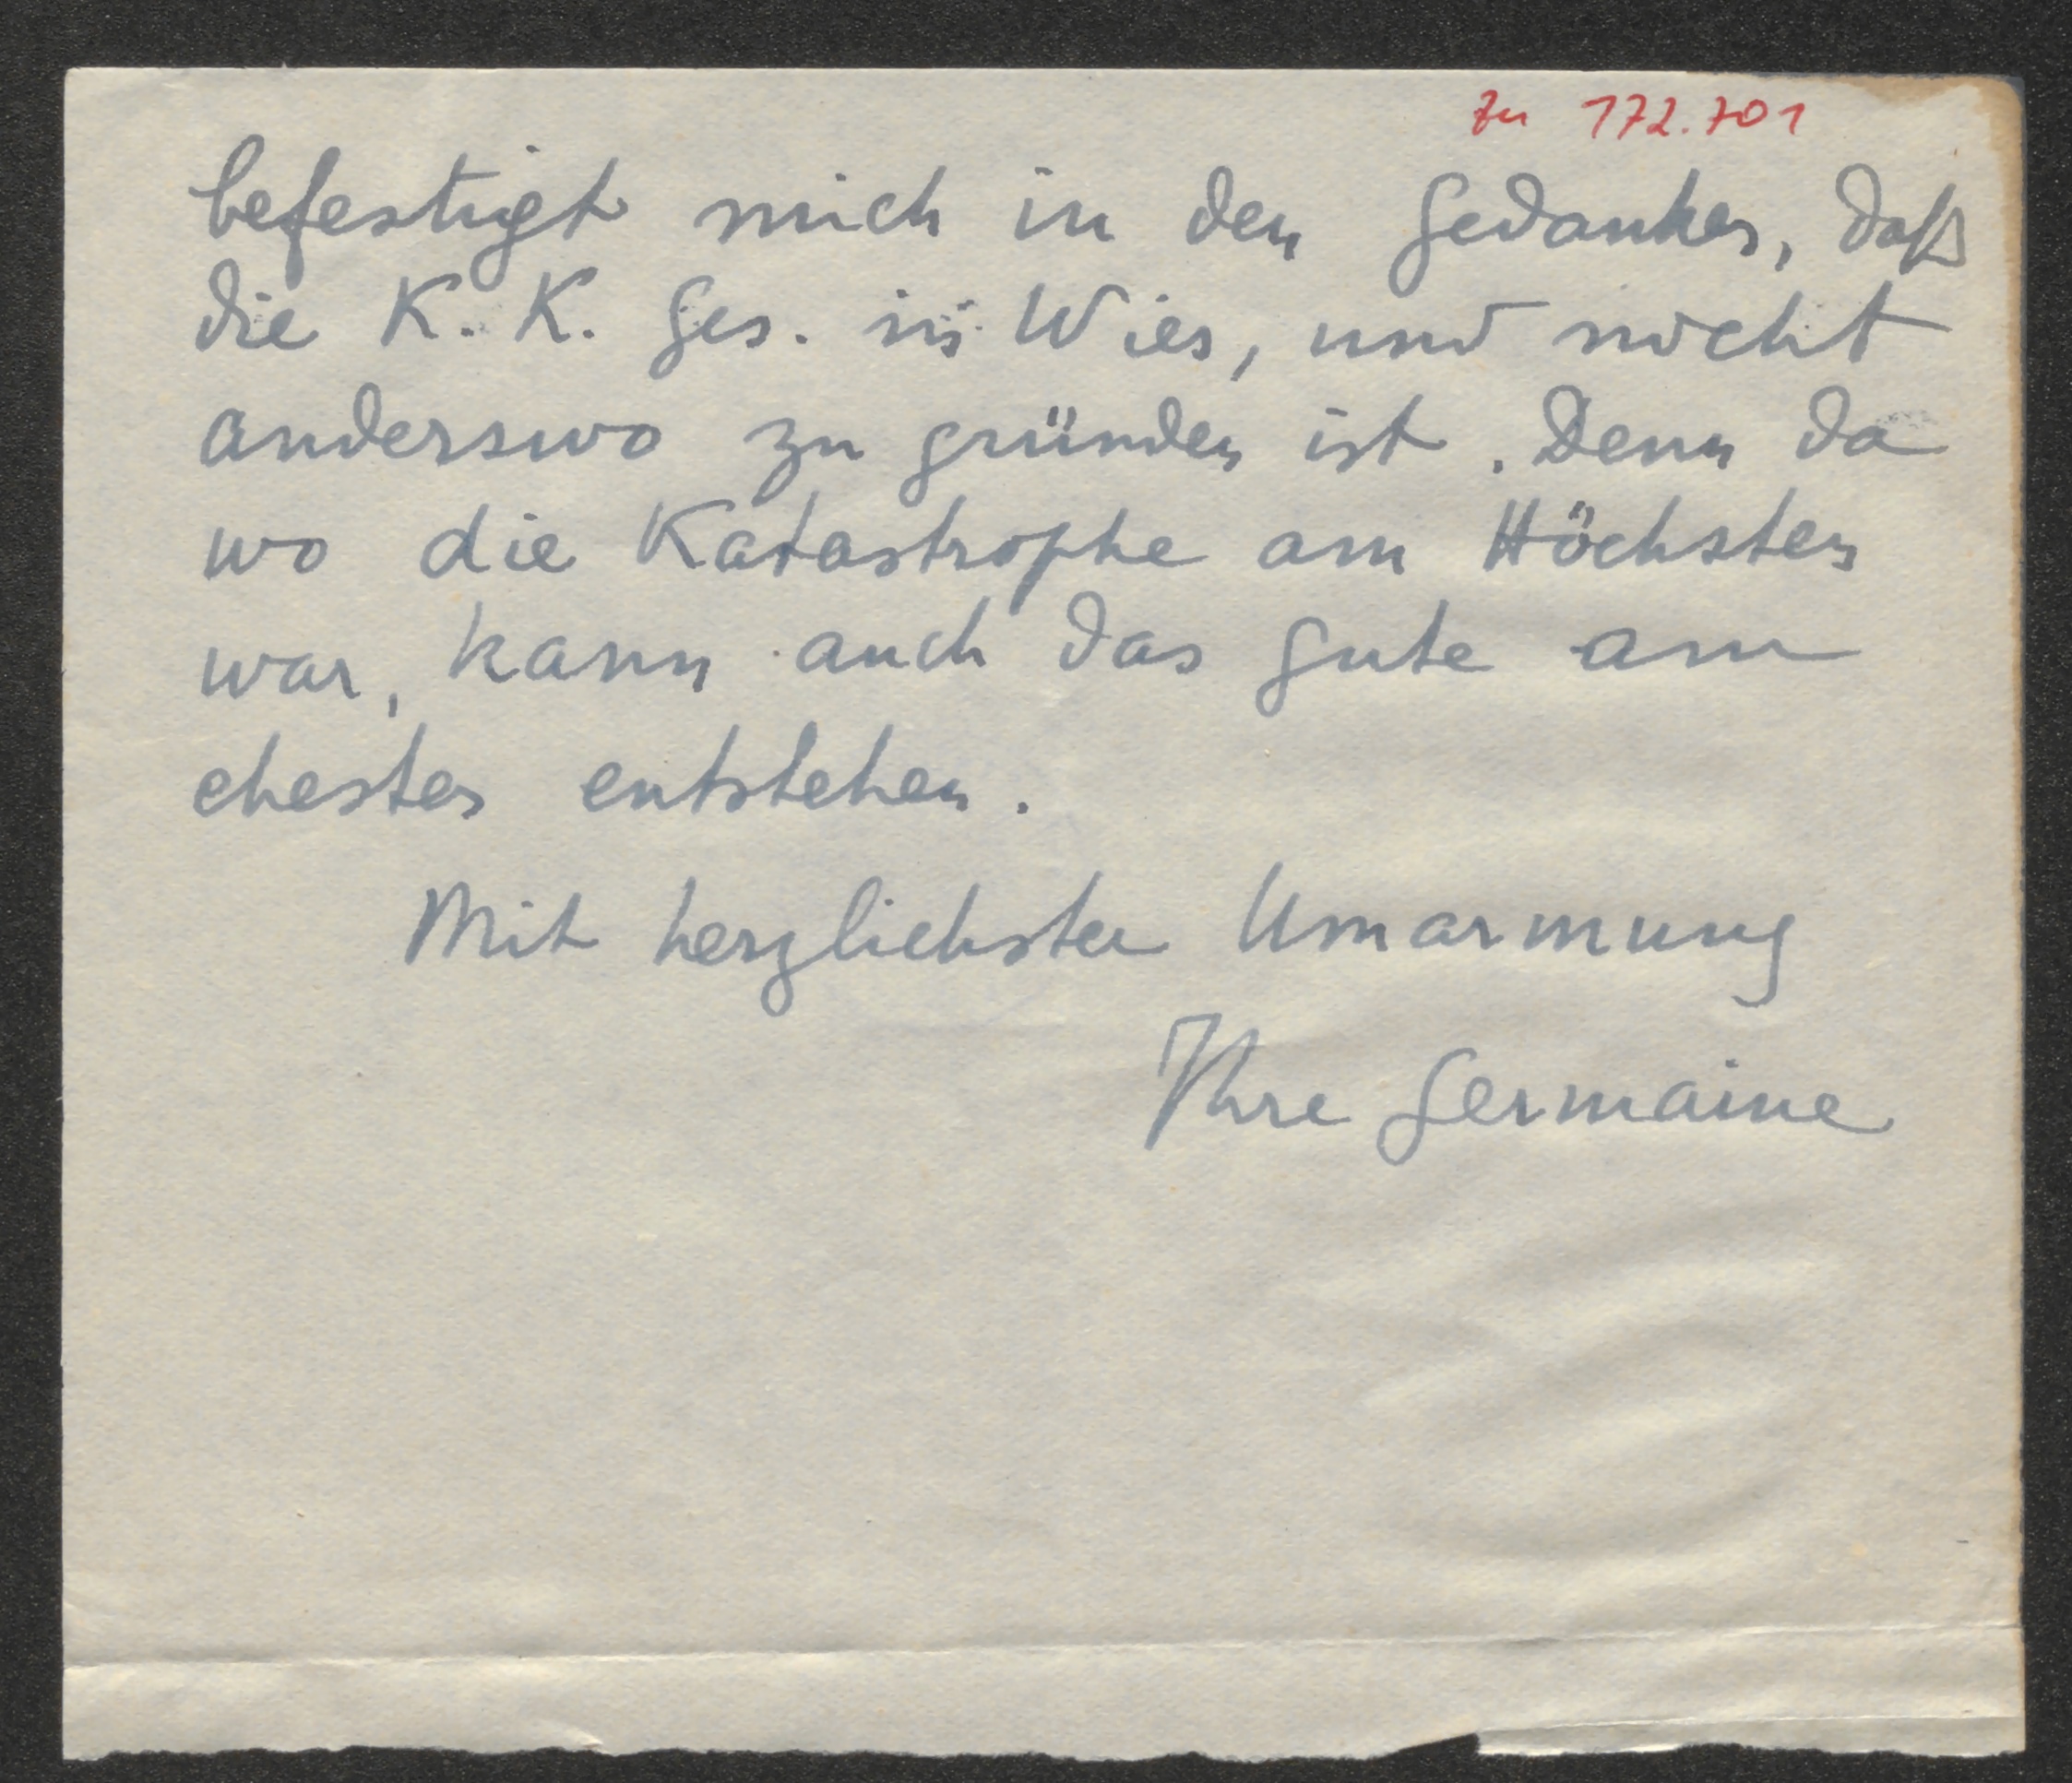 zu 172.701
befestigt mich in den Gedanken, daß
die K. K. Ges. in Wien, und nicht
anderswo zu gründen ist. Denn da
wo die Katastrophe am Höchsten
war, kann auch das Gute am
ehesten entstehen.
Mit herzlichster Umarmung
Ihre Germaine